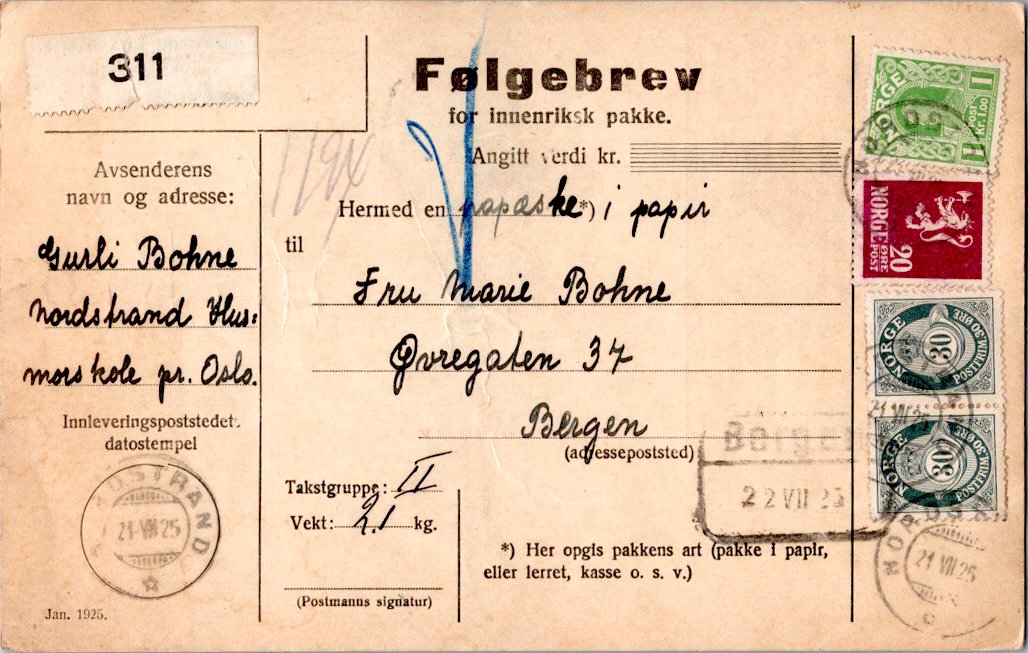 311
Følgebrev
for innenriksk pakke.
Angitt verdi kr.
Avsenderens
navn og adresse:
Gurli Bohne
Nordstrand Hus-
morskole pr. Oslo.
Innleveringspoststedets
datostempel
NORDSTRAND
21 VII 25
Jan. 1925.
Hermed en papæske*) i papir
til
Fru Marie Bohne
Øvregaten 37
Bergen
(adressepoststed)
Bergen
22 VII 25
Takstgruppe: II
Vekt: 2.1 kg.
(Postmanns signatur)
*) Her opgis pakkens art (pakke i papir,
eller lerret, kasse o. s. v.)
NORGE
1
1
POST
NORGE
20
ØRE
POST
NORGE
30
POSTFRIM. 30 ØRE
21 VII 25
NORGE
30
POSTFRIM. 30 ØRE
21 VII 25